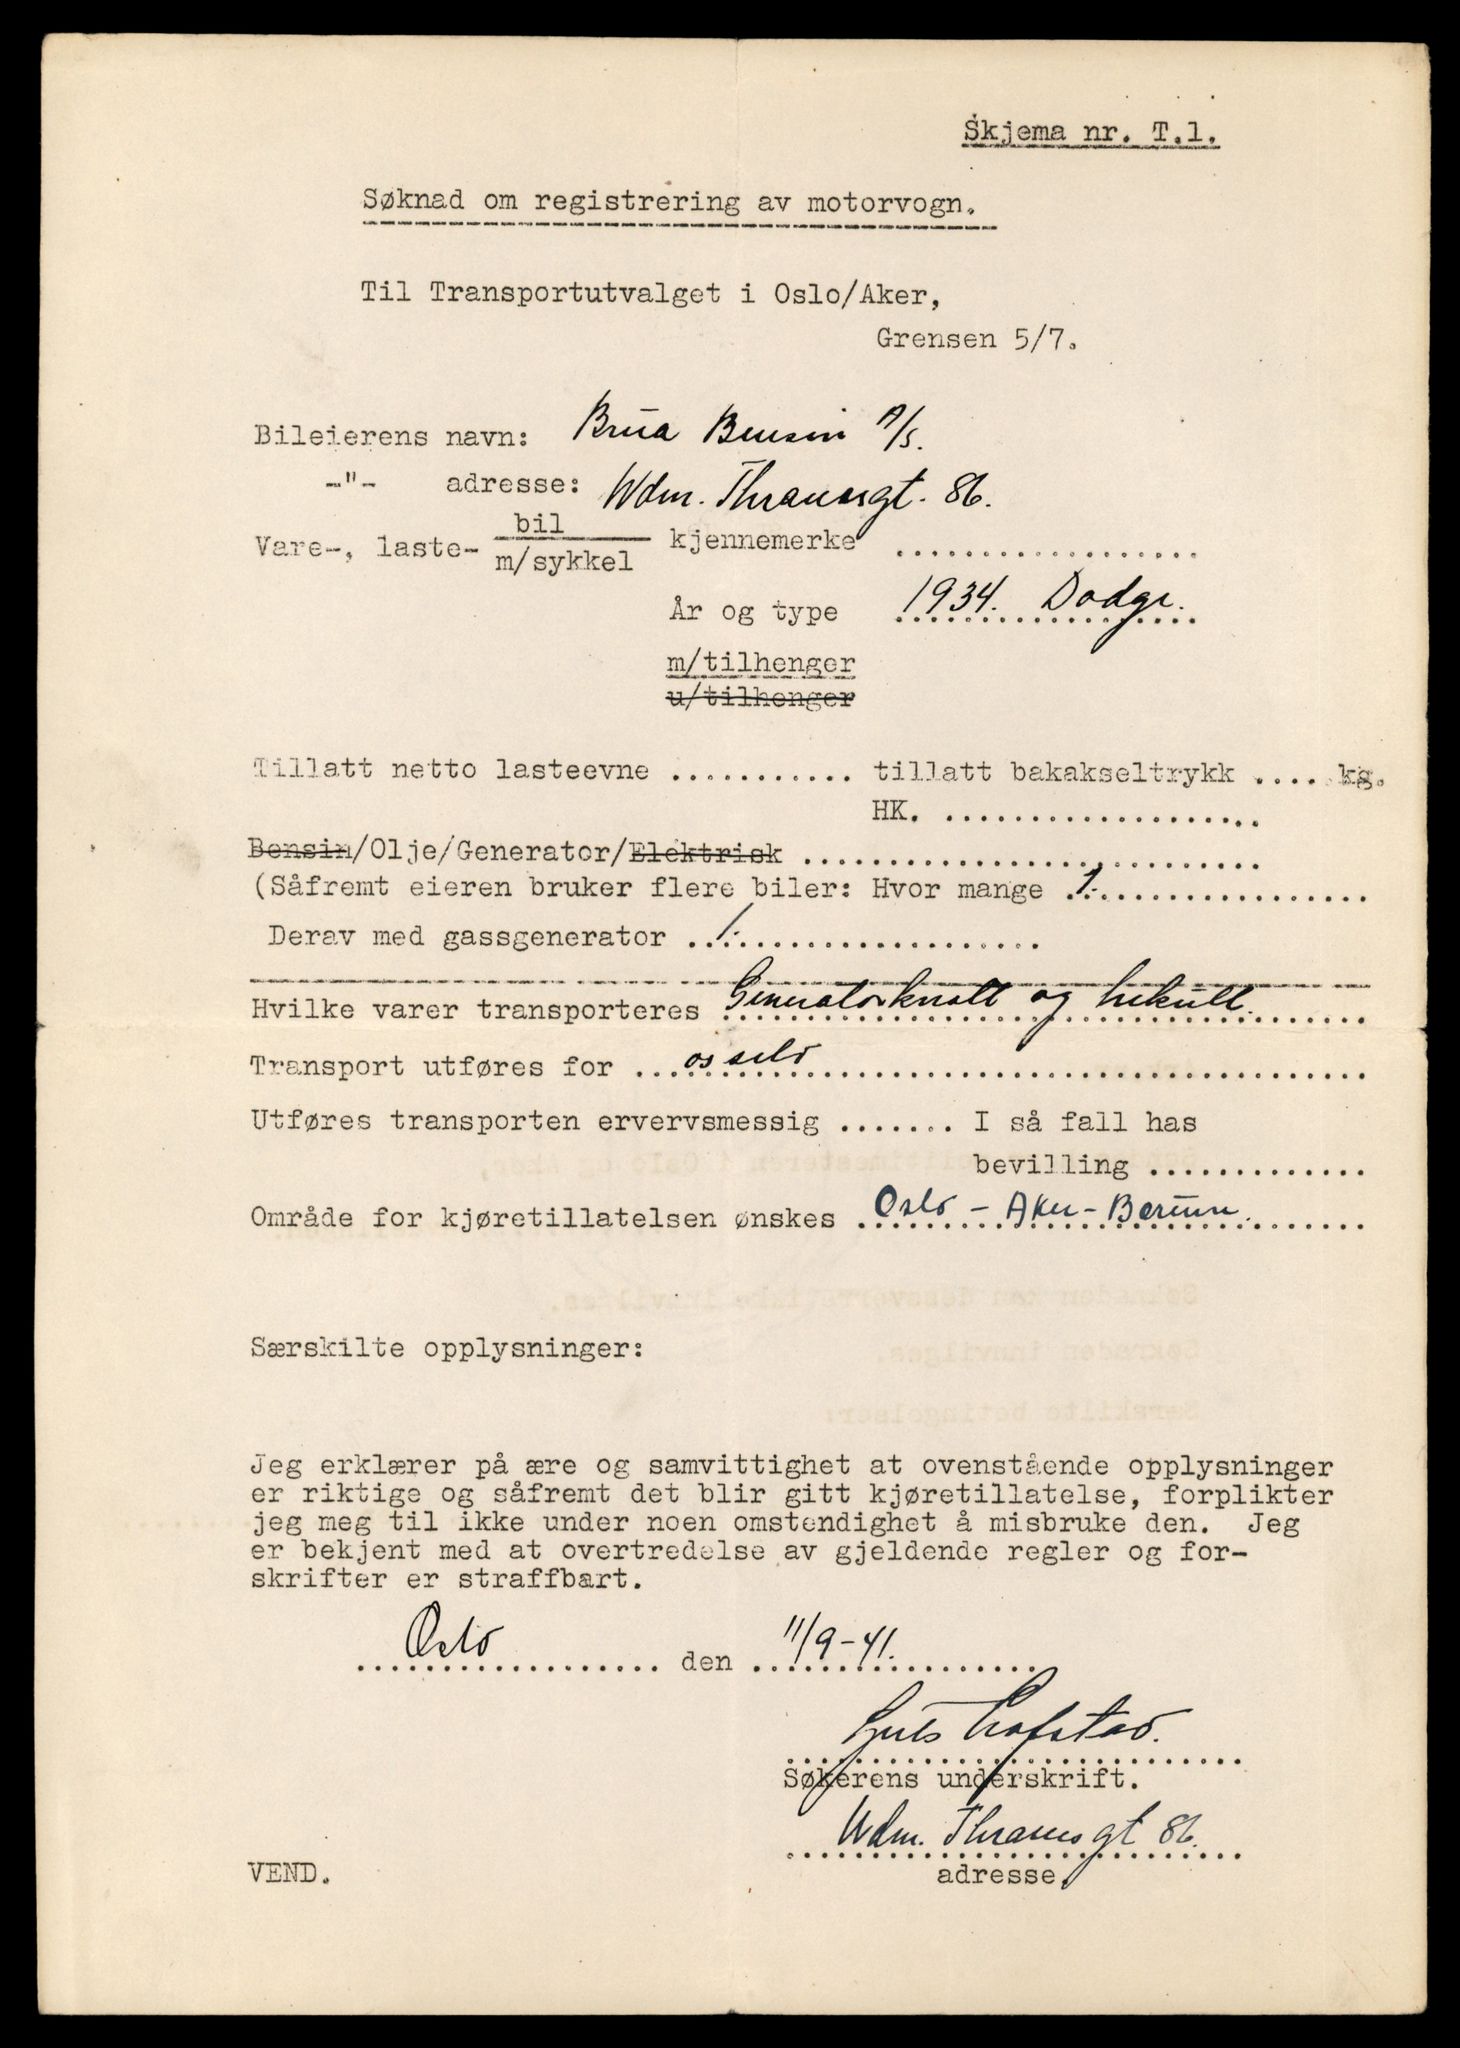 Skjema nr. T.1.
Søknad om registrering av motorvogn.
Til Transportutvalget i Oslo/Aker,
Grensen 5/7.
Bileierens navn: Brua Bensin A/S.
-"- adresse: Wdm. Thranesgt. 86.
Vare-, laste- bil
m/sykkel kjennemerke ....................
År og type 1934. Dodge.
m/tilhenger
u/tilhenger
Tillatt netto lasteevne ........... tillatt bakakseltrykk .... kg.
HK. ...................
Bensin/Olje/Generator/Elektrisk ............................
(Såfremt eieren bruker flere biler: Hvor mange 1.
Derav med gassgenerator 1.
Hvilke varer transporteres Generatorknott og trekull.
Transport utføres for os selv
Utføres transporten ervervsmessig ....... I så fall has
bevilling .............
Område for kjøretillatelsen ønskes Oslo - Aker - Berum.
Særskilte opplysninger:
Jeg erklærer på ære og samvittighet at ovenstående opplysninger
er riktige og såfremt det blir gitt kjøretillatelse, forplikter
jeg meg til ikke under noen omstendighet å misbruke den. Jeg
er bekjent med at overtredelse av gjeldende regler og for-
skrifter er straffbart.
Oslo den 11/9-41.
Søkerens underskrift.
Wdm. Thranesgt 86.
adresse.
VEND.